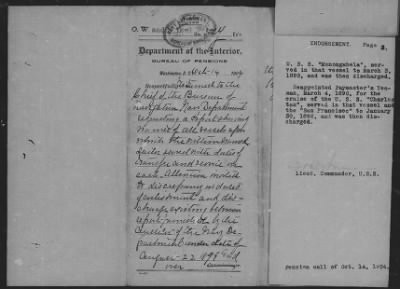 O. W. and
Department of the Interior,
BUREAU OF PENSIONS
Washington, D. C., Oct. 14, 1904
Respectfully returned to the
Chief of the Bureau of
Navigation Navy Department
requesting a report showing
names of all vessels upon
which William
served with dates of
transfer and service on
each. Attention invited
to discrepancy in dates
of enlistment and dis-
charge existing between
report
of the Navy De-
partment under date of
August 22 1899
over
Commissioner.
ENDORSEMENT. Page 2.
U. S. S. "Monongahela", ser-
ved in that vessel to March 3,
1890, and was then discharged.
Reappointed Paymaster's Yeo-
man, March 4, 1890, for the
cruise of the U. S. S. "Charles-
ton", served in that vessel and
the "San Francisco" to January
30, 1892, and was then dis-
charged.
Lieut. Commander, U.S.N.
Pension call of Oct. 14, 1904.